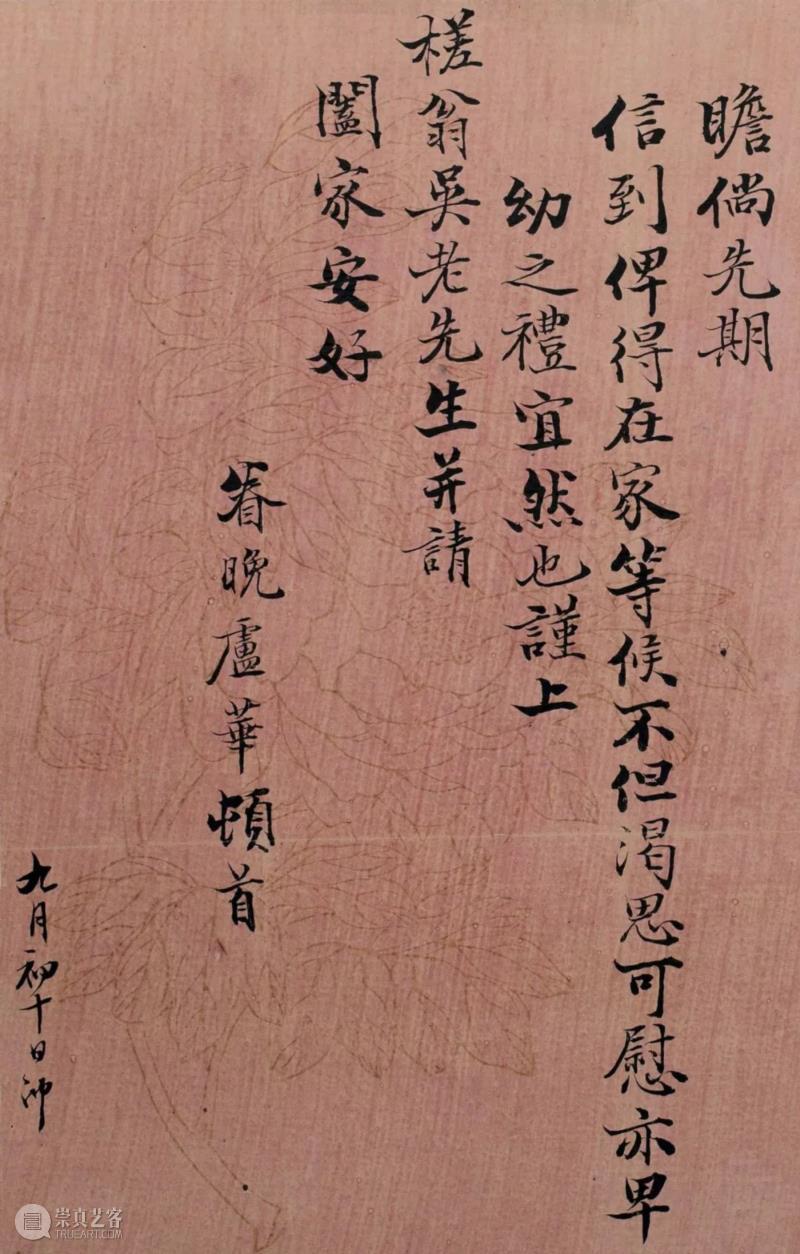 瞻倘先期
信到俾得在家等候不但渴思可慰亦卑
幼之禮宜然也謹上
槎翁吳老先生并請
闔家安好
眷晚盧華頓首
九月初十日沖
崇真艺客
TRUEART.COM